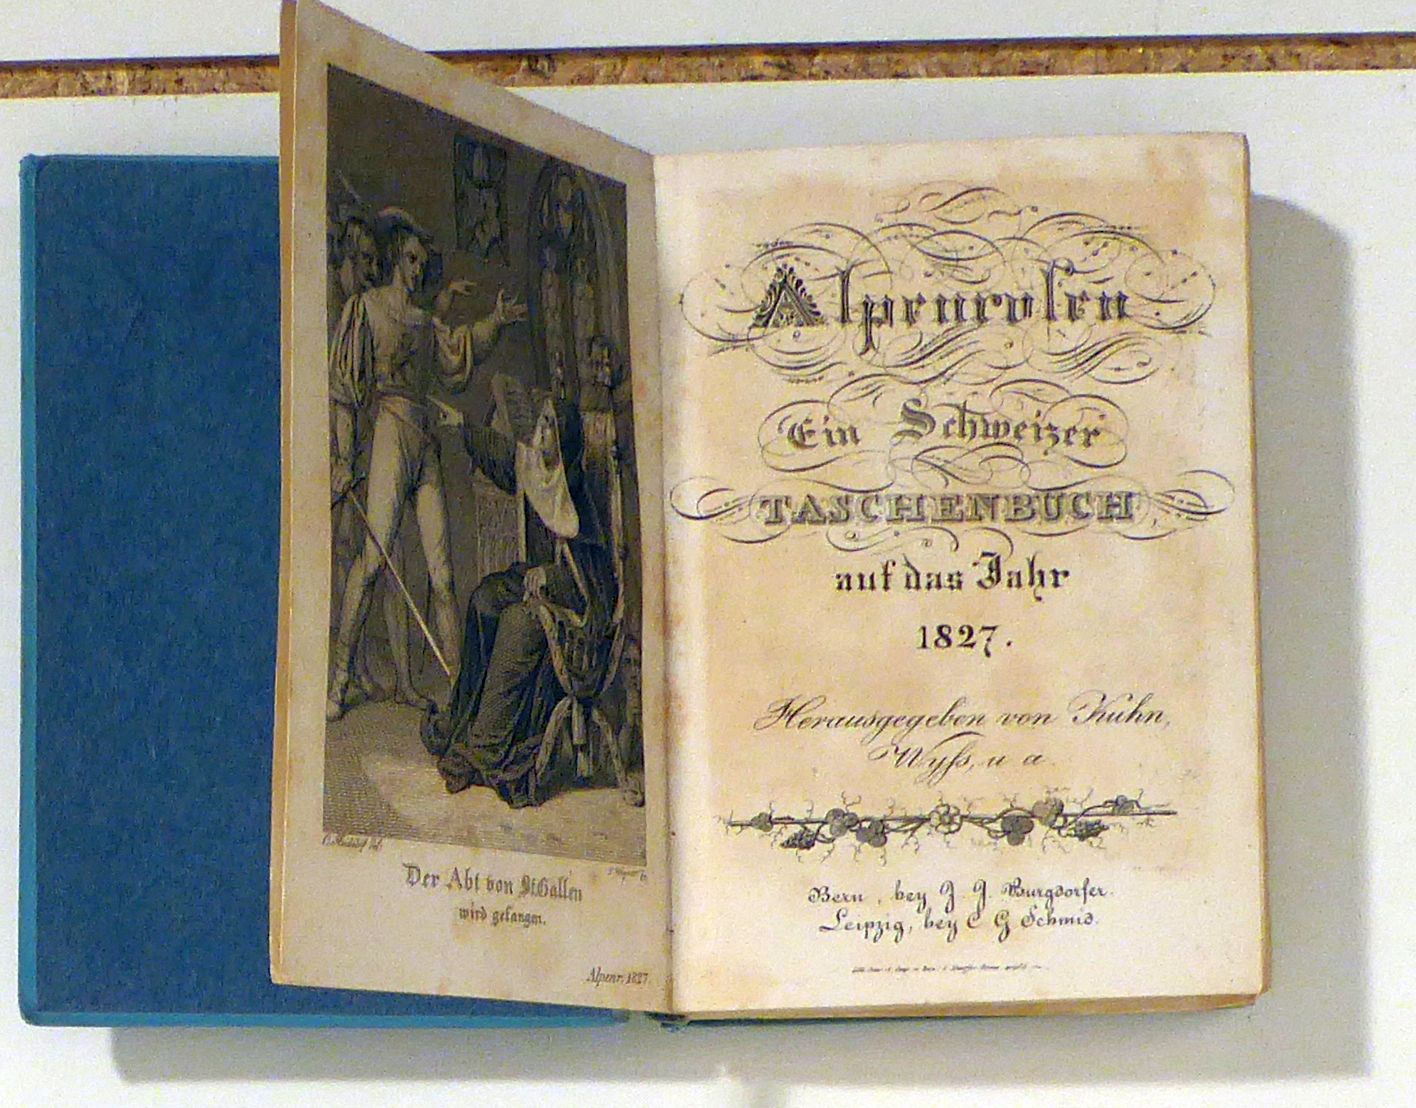 Der Abt von St. Gallen
wird gefangen.
Alpenr. 1827.
Alpenroſen
Ein Schweizer
TASCHENBUCH
auf das Jahr
1827.
Herausgegeben von Kuhn,
Wyſs, u a.
Bern, bey J. J. Burgdorfer.
Leipzig, bey C G Schmid.